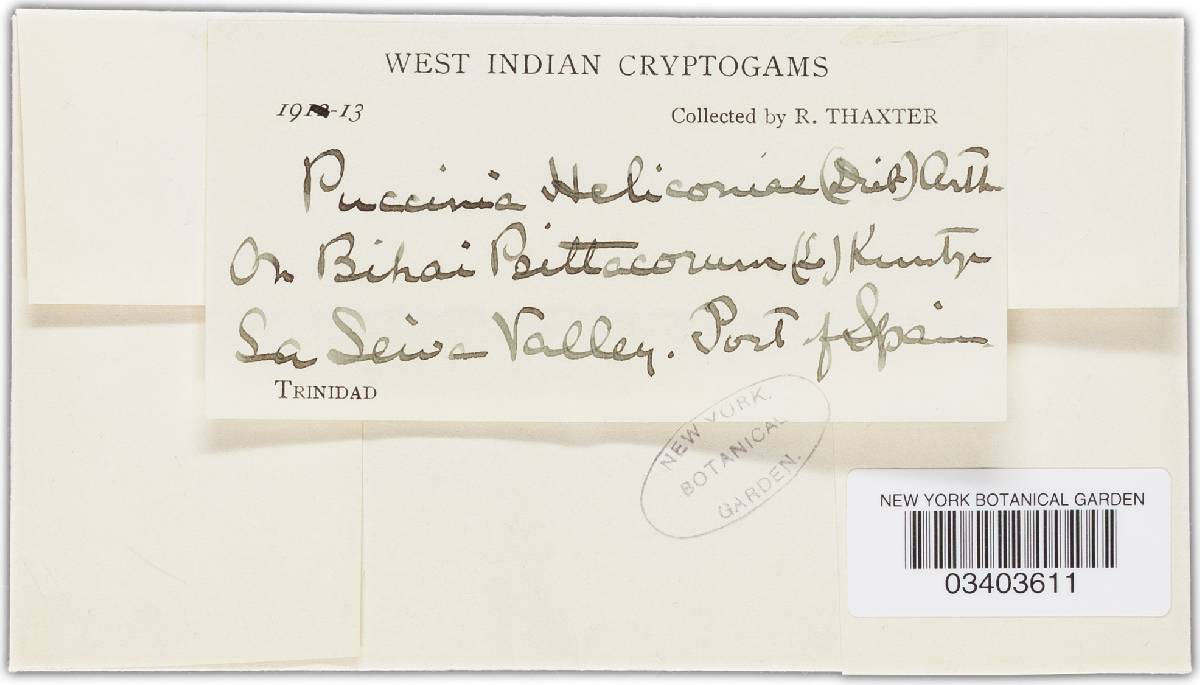 WEST INDIAN CRYPTOGAMS
1912-13
Collected by R. THAXTER
Puccinia Heliconiae (Diet) Arth
On Bihai Psittacorum (L) Kuntze
La Seiva Valley. Port of Spain
TRINIDAD
NEW YORK.
BOTANICAL
GARDEN.
NEW YORK BOTANICAL GARDEN
03403611